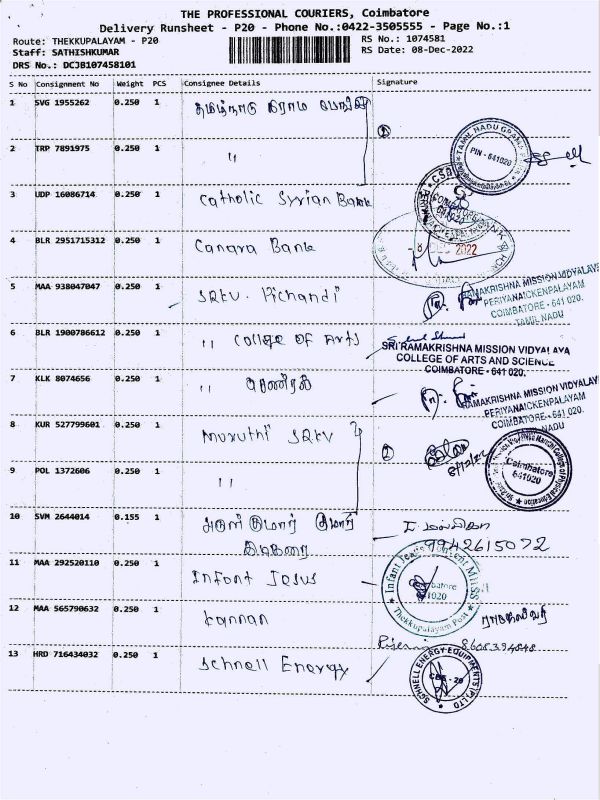 THE PROFESSIONAL COURIERS, Coimbatore
Delivery Runsheet - P20 - Phone No.:0422-3505555 - Page No.:1
Route: THEKKUPALAYAM - P20
RS No.: 1074581
Staff: SATHISHKUMAR
RS Date: 08-Dec-2022
DRS No.: DCJB107458101
S No Consignment No Weight PCS Consignee Details Signature
1 SVG 1955262 0.250 1 தமிழ்நாடு கிராம
2 TRP 7891975 0.250 1 "
TAMIL NADU GRAMA
PIN - 641020
3 UDP 16086714 0.250 1 Catholic Syrian Bank
4 BLR 2951715312 0.250 1 Canara Bank
-8 DEC 2022
5 MAA 938047047 0.250 1 SRKV. Pichandi
RAMAKRISHNA MISSION VIDYALAYA
PERIYANAICKENPALAYAM
COIMBATORE - 641 020.
TAMIL NADU
6 BLR 1900786612 0.250 1 " College of Arts
SRI RAMAKRISHNA MISSION VIDYALAYA
COLLEGE OF ARTS AND SCIENCE
COIMBATORE - 641 020.
7 KLK 8074656 0.250 1 "
RAMAKRISHNA MISSION VIDYALAYA
PERIYANAICKENPALAYAM
COIMBATORE - 641 020.
NADU
8 KUR 527799601 0.250 1 Maruthi SRKV
2
8/12/22
Coimbatore
641020
9 POL 1372606 0.250 1 "
10 SVM 2644014 0.155 1 அருள் குமார்
9942615072
11 MAA 292520110 0.250 1 Infant Jesus
Thekkupalayam Post
12 MAA 565790632 0.250 1 Kannan
8608394848
13 HRD 716434032 0.250 1 Schnell Energy
SCHNELL ENERGY EQUIPMENTS (P) LTD
CBE - 20